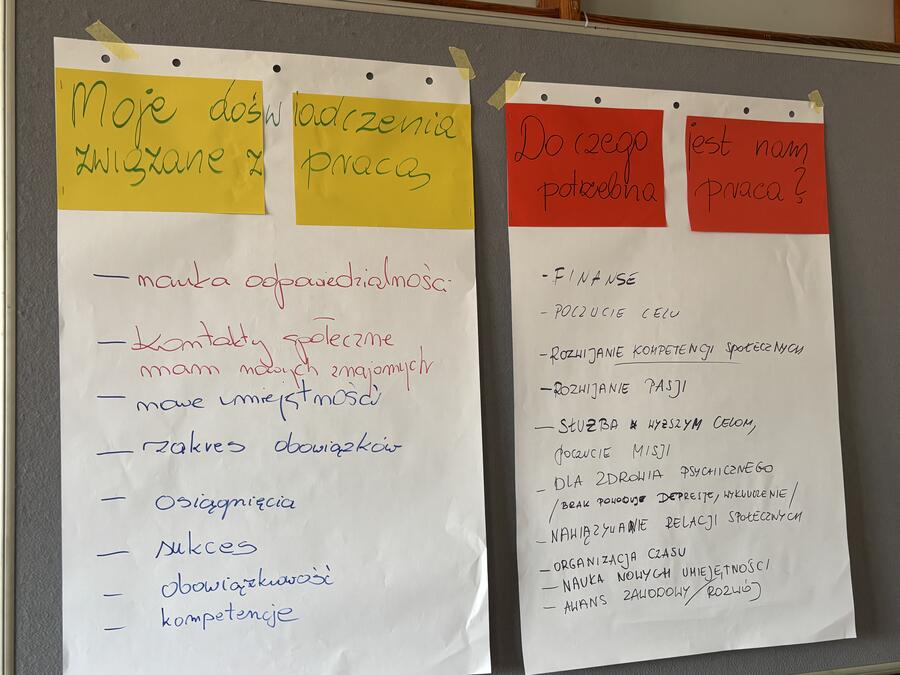 Moje doświadczenia
związane z pracą
— nauka odpowiedzialności
— Kontakty społeczne
mam nowych znajomych
— nowe umiejętności
— zakres obowiązków
— osiągnięcia
— sukces
— obowiązkowość
— kompetencje
Do czego jest nam
potrzebna praca?
- FINANSE
- POCZUCIE CELU
- ROZWIJANIE KOMPETENCJI SPOŁECZNYCH
- ROZWIJANIE PASJI
- SŁUŻBA WYŻSZYM CELOM,
POCZUCIE MISJI
- DLA ZDROWIA PSYCHICZNEGO
/BRAK POWODUJE DEPRESJE, WYKLUCZENIE/
- NAWIĄZYWANIE RELACJI SPOŁECZNYCH
- ORGANIZACJA CZASU
- NAUKA NOWYCH UMIEJĘTNOŚCI
- AWANS ZAWODOWY/ROZWÓJ